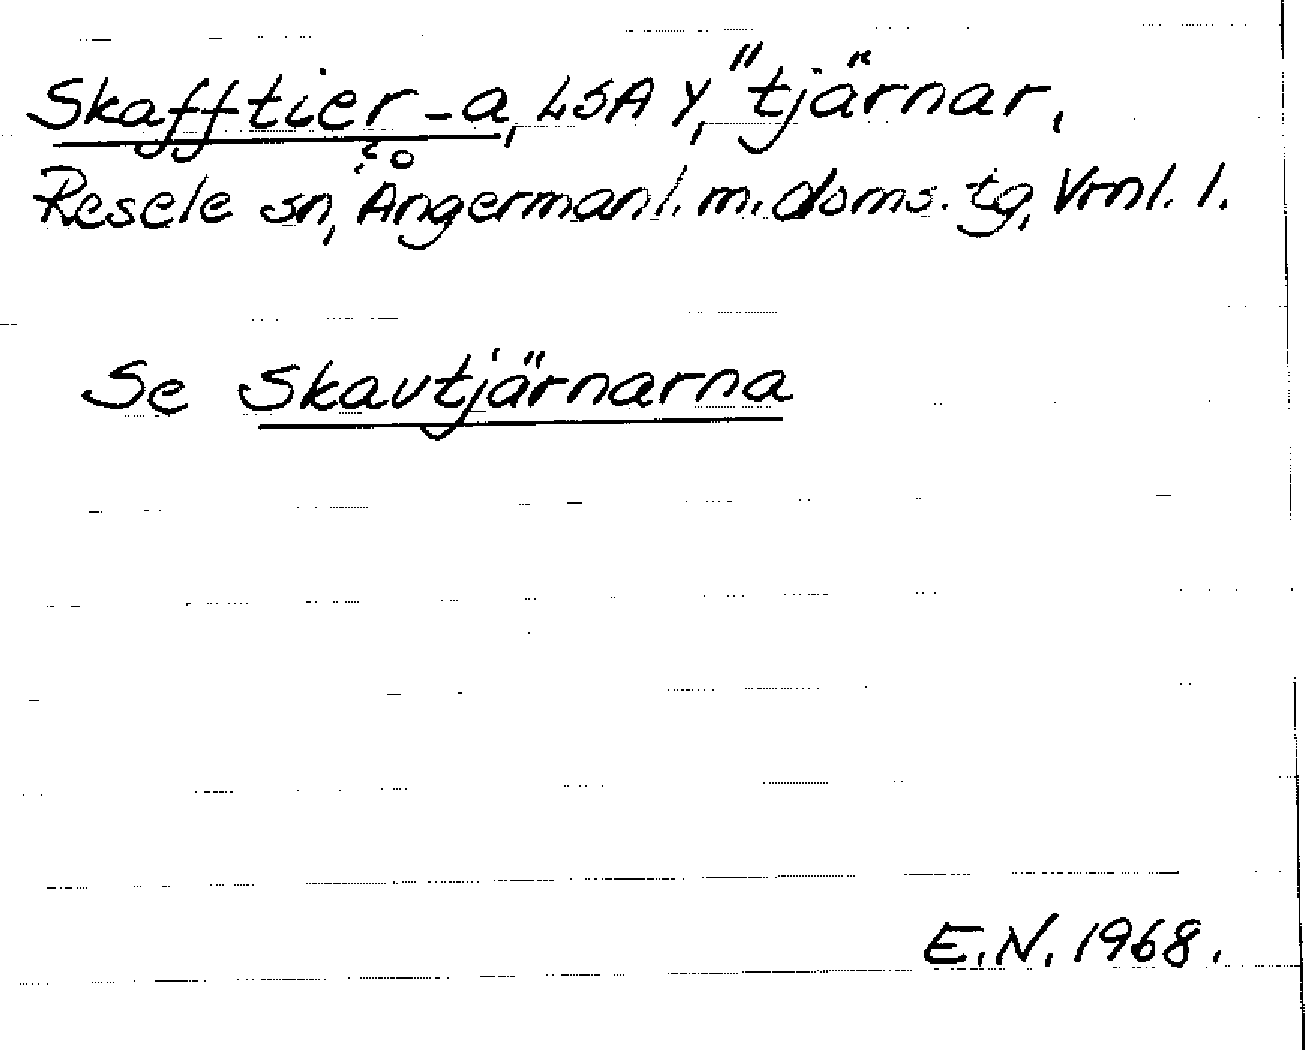 Skafftier -a, LSA Y, "tjärnar,
Resele sn, Ångermanl. m. doms. tg, Vrnl. l.
Se Skavtjärnarna
E.N. 1968.